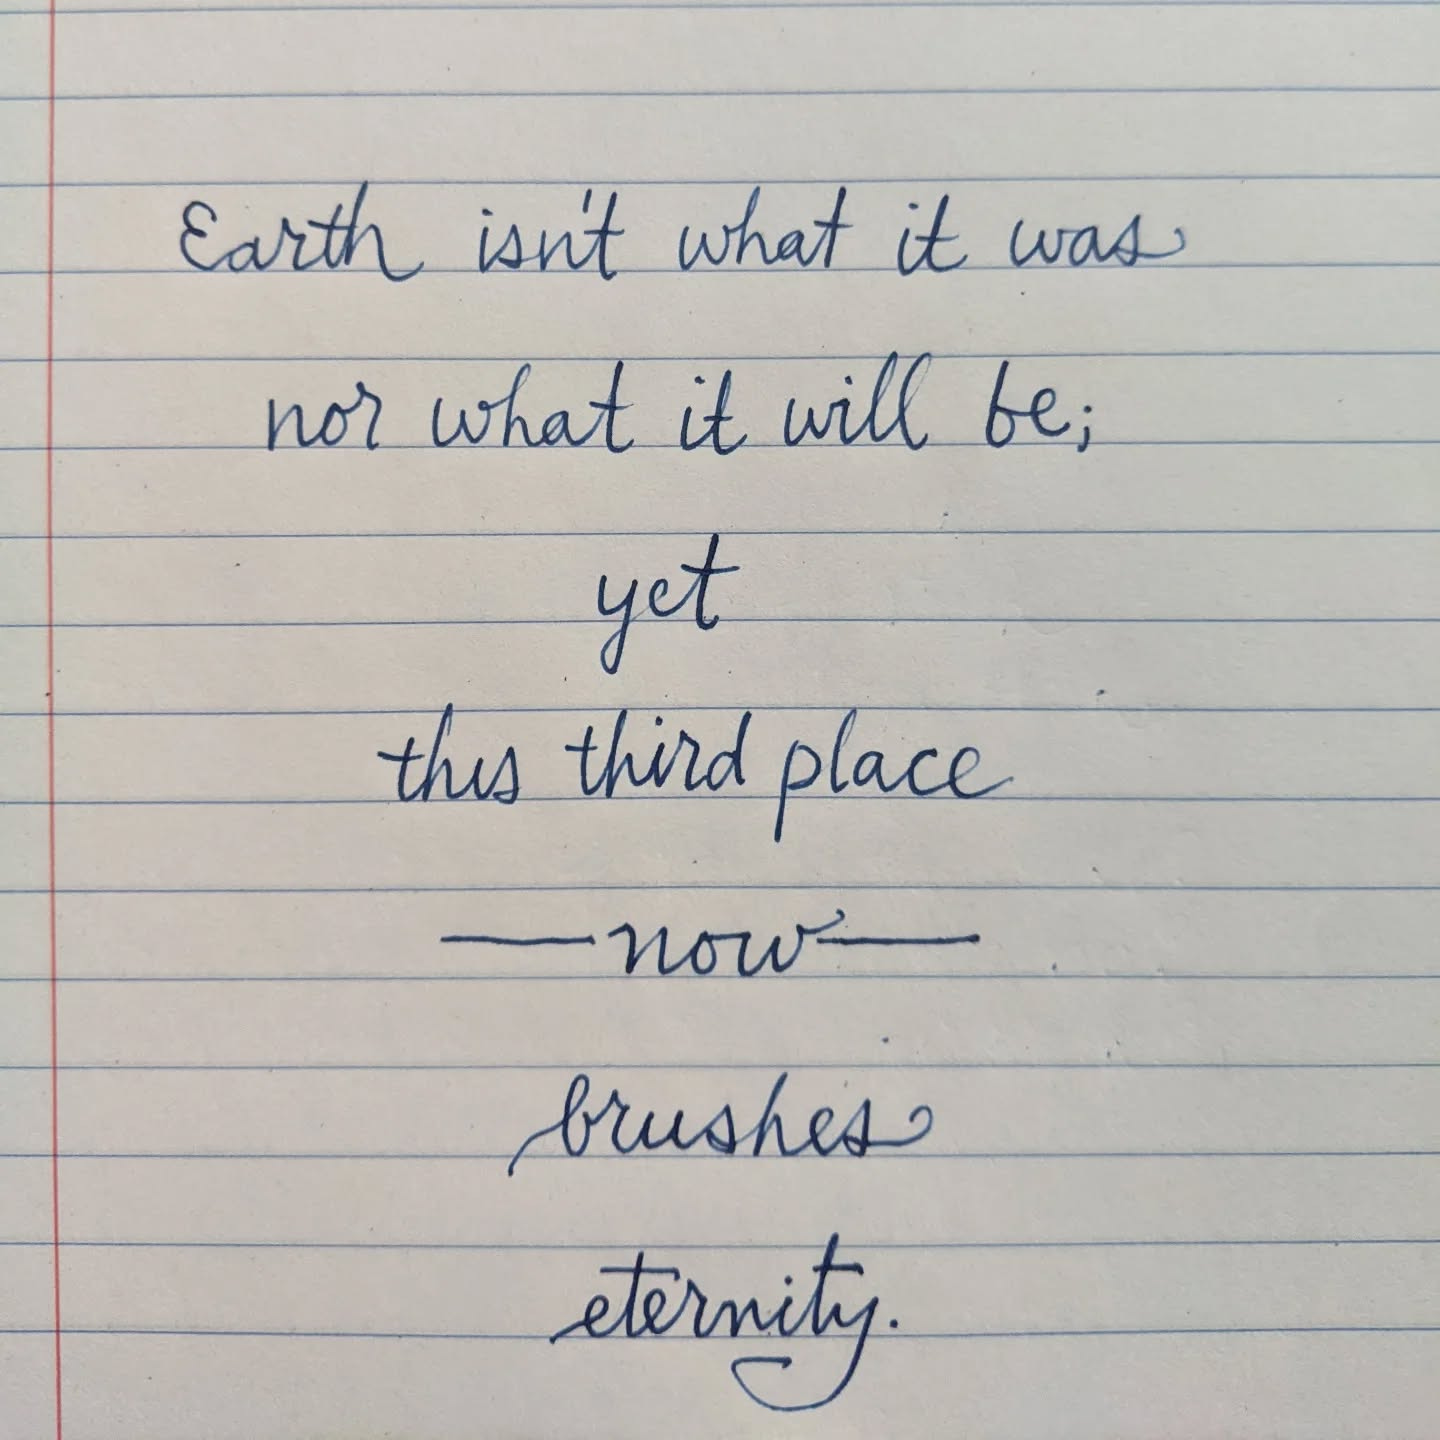 Earth isn't what it was
nor what it will be;
yet
this third place
—now—
brushes
eternity.